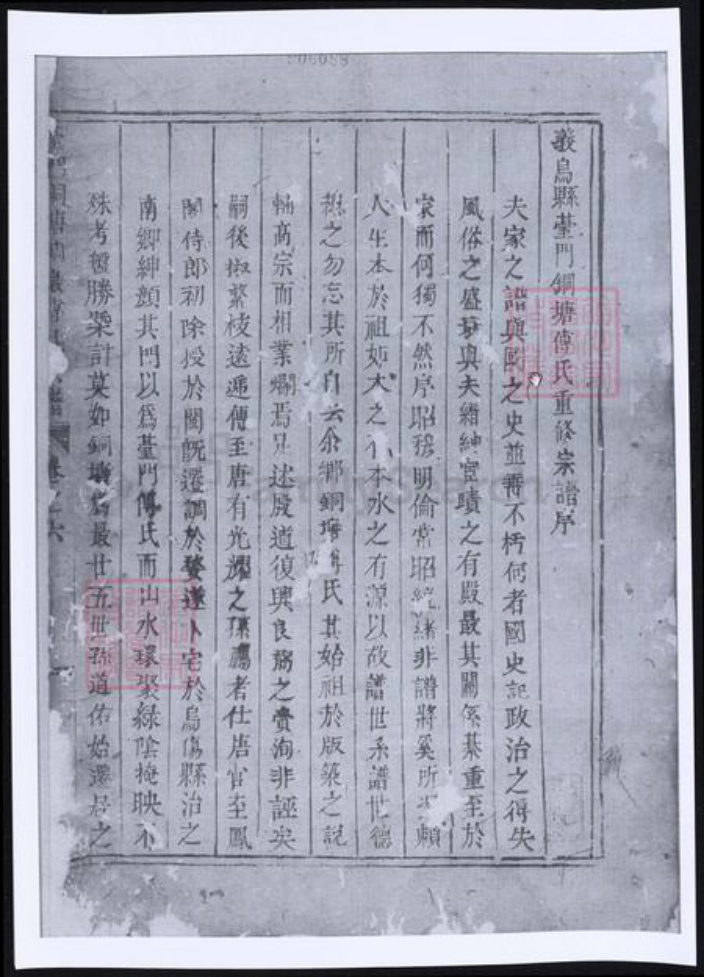 義烏縣臺門銅塘傅氏重修宗譜序
夫家之譜與國之史並壽不朽何者國史記政治之得失
風俗之盛與夫縉紳宦蹟之有殿最其關係綦重至於
家而何獨不然序昭穆明倫常昭統緒非譜將奚所賴
人生本於祖如木之有本水之有源以故譜世系譜世德
之勿忘其所自云余鄉銅塘傅氏其始祖於版築之說
輔高宗而相業爛焉凡述殷道復興良弼之賚洵非誣矣
嗣後椒繁枝遠遞傳至唐有光之孫者仕唐官至鳳
閣侍郎初除授於閩旣遷調於婺遂卜宅於烏傷縣治之
南鄉紳顏其門以爲臺門傅氏而山水環聚綠陰掩映不
殊考槃勝槩計莫如銅塘爲最廿五世孫道佑始遷居之
卷之六